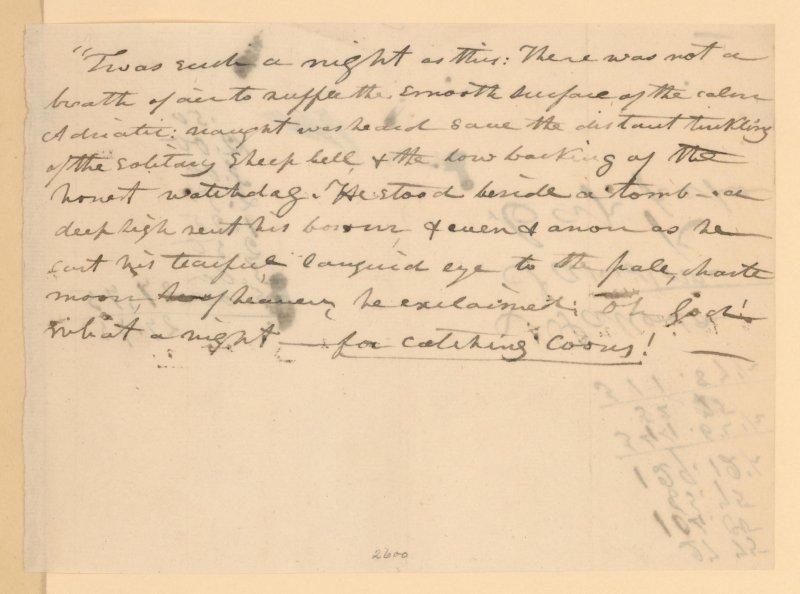 "Twas such a night as this: There was not a
breath of air to ruffle the smooth surface of the calm
Adriatic: naught was heard save the distant tinkling
of the solitary sheep bell, & the low barking of the
honest watchdog. He stood beside a tomb — a
deep sigh rent his bosom, & even & anon as he
cast his tearful, languid eye to the pale, chaste
moon, of heaven, he exclaimed: Oh God!
what a night — for catching coons!
2600